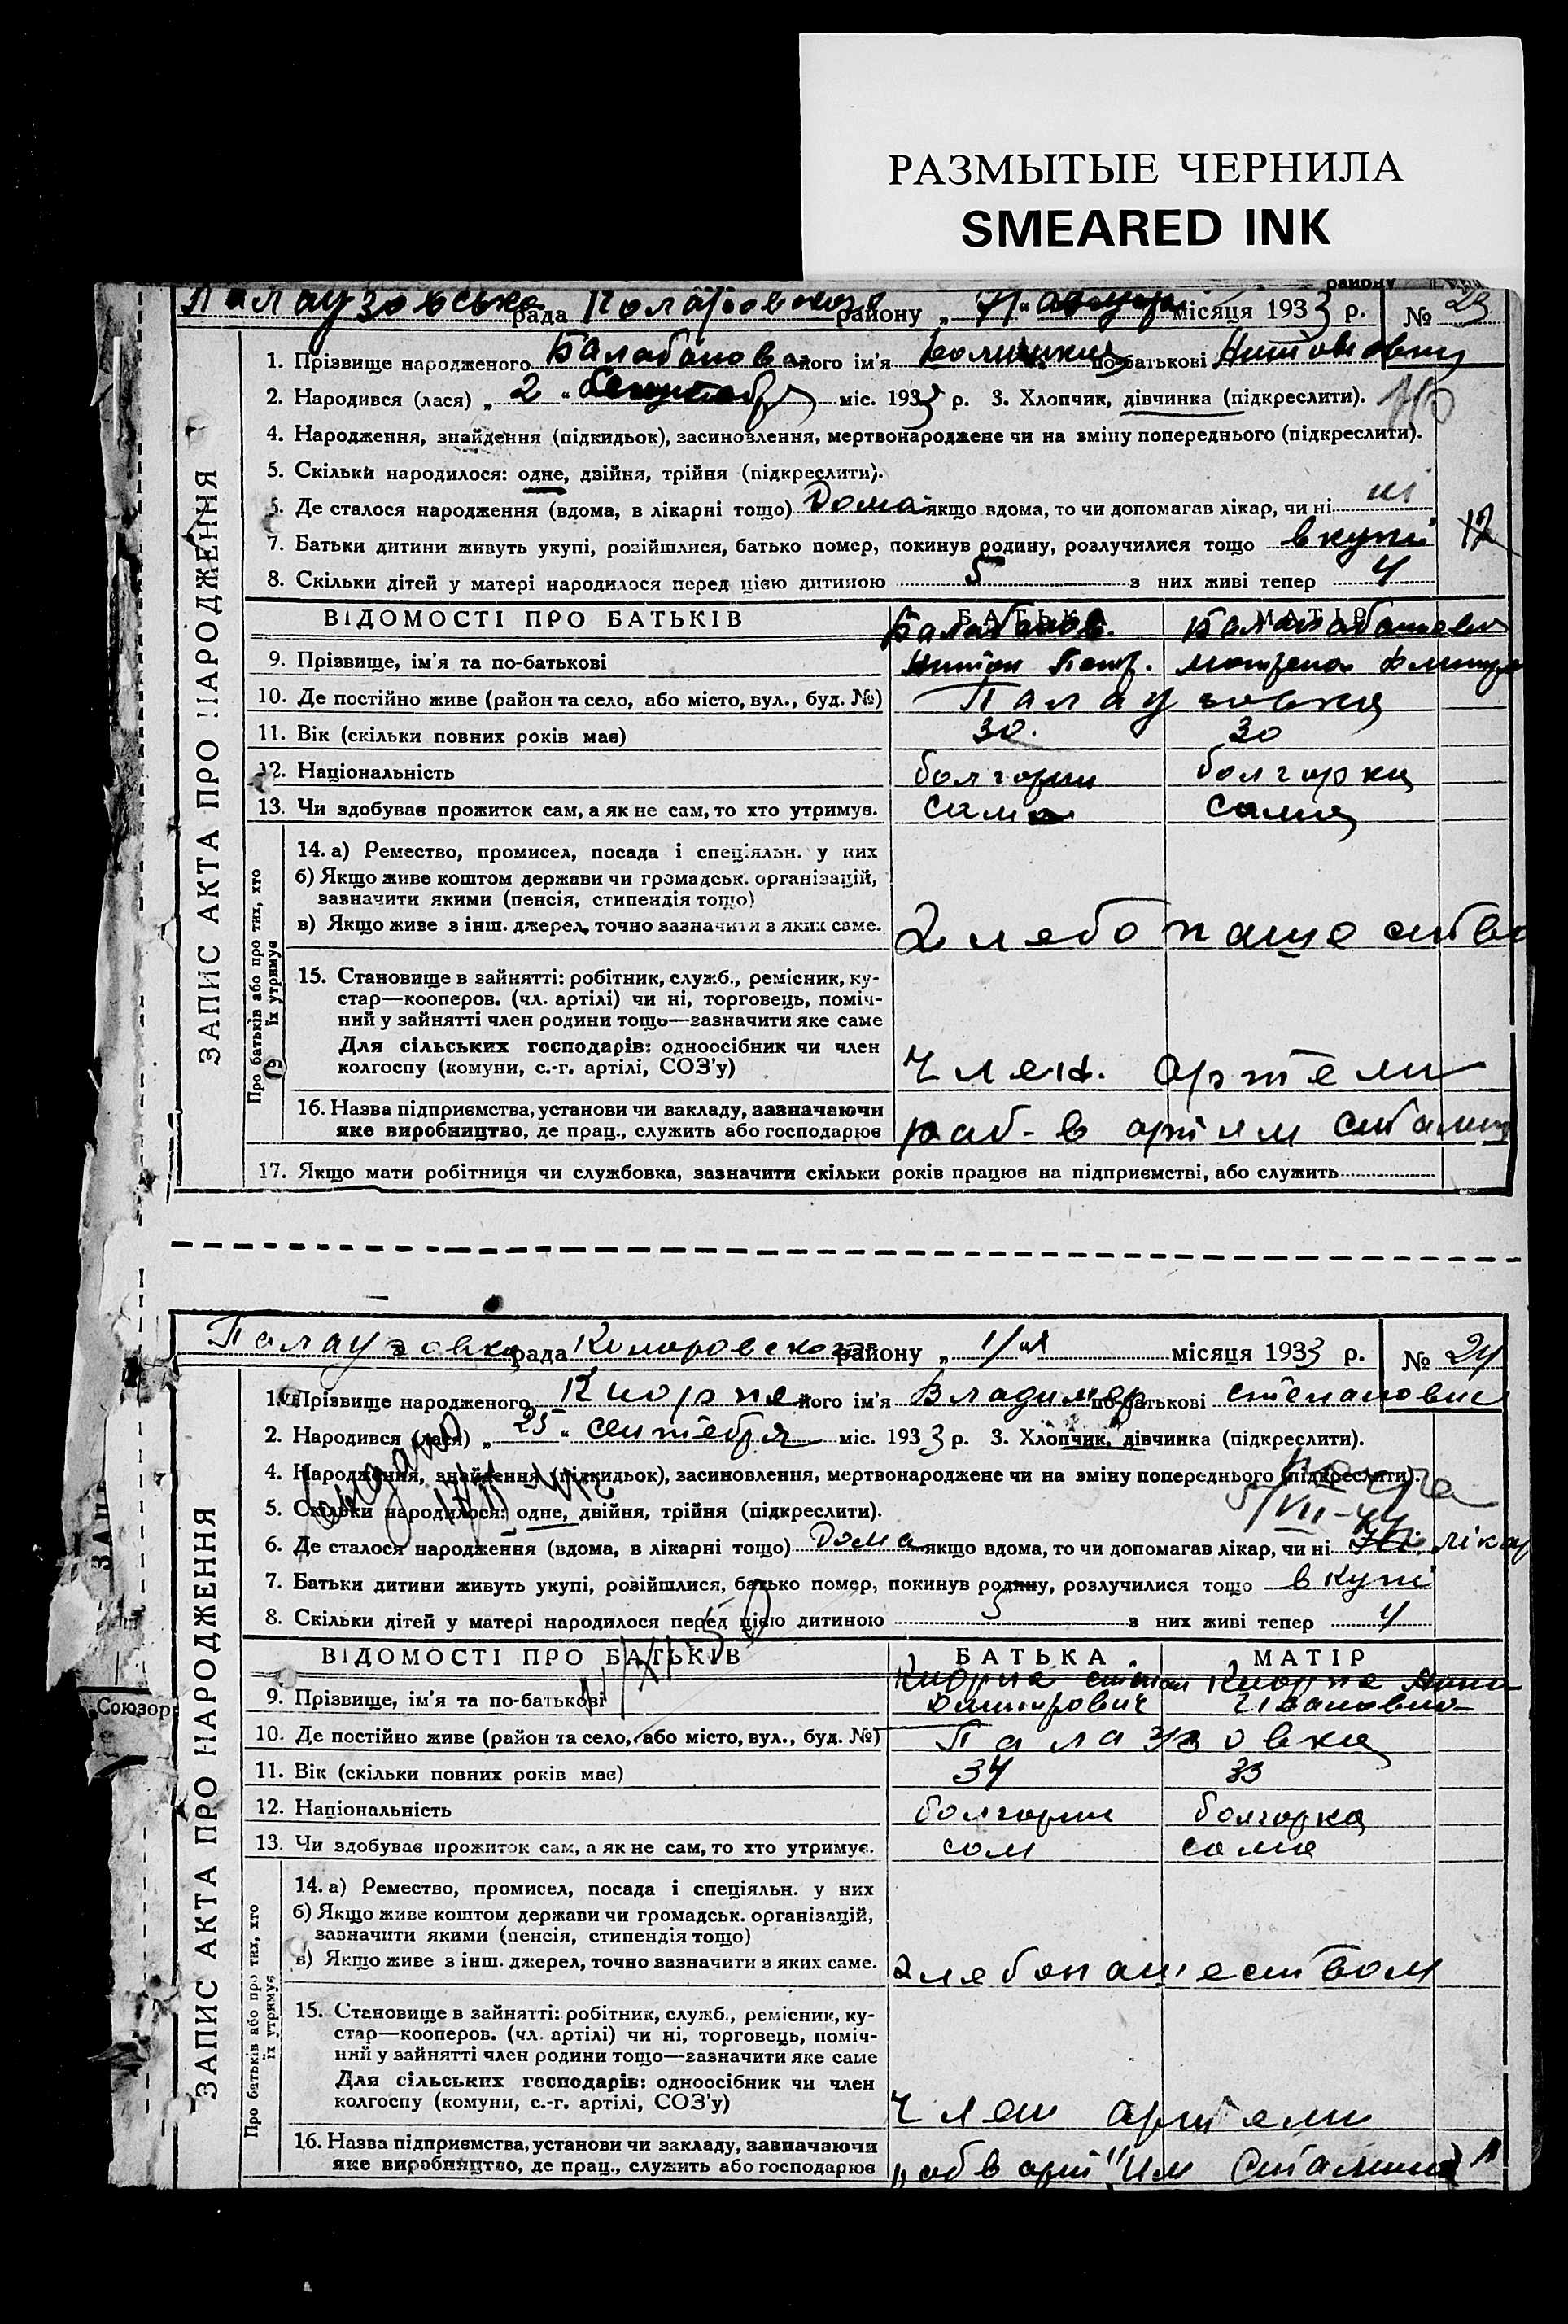 РАЗМЫТЫЕ ЧЕРНИЛА
SMEARED INK
району
рада району місяця 1933 р. № 23
1. Прізвище народженого Балабанова його ім'я по-батькові
2. Народився (лася) „ 2 " міс. 1933 р. 3. Хлопчик, дівчинка (підкреслити).
4. Народження, знайдення (підкидьок), засиновлення, мертвонароджене чи на зміну попереднього (підкреслити).
5. Скільки народилося: одне, двійня, трійня (підкреслити).
6. Де сталося народження (вдома, в лікарні тощо) Дома якщо вдома, то чи допомагав лікар, чи ні
7. Батьки дитини живуть укупі, розійшлися, батько помер, покинув родину, розлучилися тощо вкупі 12
8. Скільки дітей у матері народилося перед цією дитиною 5 з них живі тепер 4
ЗАПИС АКТА ПРО НАРОДЖЕННЯ
ВІДОМОСТІ ПРО БАТЬКІВ БАТЬКА МАТІР
Балабанов.
9. Прізвище, ім'я та по-батькові
10. Де постійно живе (район та село, або місто, вул., буд. №) Палаузовка
11. Вік (скільки повних років має) 30. 30
12. Національність болгорин болгорка
13. Чи здобуває прожиток сам, а як не сам, то хто утримує. сама
Про батьків або про тих, хто їх утримує
14. а) Ремество, промисел, посада і спеціяльн. у них
б) Якщо живе коштом держави чи громадськ. організацій,
зазначити якими (пенсія, стипендія тощо)
в) Якщо живе з інш. джерел, точно зазначити з яких саме. Хлебопашество
15. Становище в зайнятті: робітник, служб., ремісник, ку-
стар—кооперов. (чл. артілі) чи ні, торговець, поміч-
ний у зайнятті член родини тощо—зазначити яке саме
Для сільських господарів: одноосібник чи член
колгоспу (комуни, с.-г. артілі, СОЗ'у) Член. артели
16. Назва підприємства, установи чи закладу, зазначаючи
яке виробництво, де прац., служить або господарює раб- в
17. Якщо мати робітниця чи службовка, зазначити скільки років працює на підприємстві, або служить
Палаузовка рада району місяця 1933 р. № 24
1. Прізвище народженого Киорпе його ім'я Владимер по-батькові степанович
2. Народився (лася) „ 25 " сентебря міс. 1933 р. 3. Хлопчик, дівчинка (підкреслити).
4. Народження, знайдення (підкидьок), засиновлення, мертвонароджене чи на зміну попереднього (підкреслити).
5. Скільки народилося: одне, двійня, трійня (підкреслити).
6. Де сталося народження (вдома, в лікарні тощо) Дома якщо вдома, то чи допомагав лікар, чи ні лікар
7. Батьки дитини живуть укупі, розійшлися, батько помер, покинув родину, розлучилися тощо вкупі
8. Скільки дітей у матері народилося перед цією дитиною 5 з них живі тепер 4
ЗАПИС АКТА ПРО НАРОДЖЕННЯ
ВІДОМОСТІ ПРО БАТЬКІВ БАТЬКА МАТІР
Киорпе степан Киорпе
9. Прізвище, ім'я та по-батькові Ивановна
Союзор
10. Де постійно живе (район та село, або місто, вул., буд. №)
11. Вік (скільки повних років має) 34 33
12. Національність болгорин болгорка
13. Чи здобуває прожиток сам, а як не сам, то хто утримує. сам сама
Про батьків або про тих, хто їх утримує
14. а) Ремество, промисел, посада і спеціяльн. у них
б) Якщо живе коштом держави чи громадськ. організацій,
зазначити якими (пенсія, стипендія тощо)
в) Якщо живе з інш. джерел, точно зазначити з яких саме. хлебопашеством
15. Становище в зайнятті: робітник, служб., ремісник, ку-
стар—кооперов. (чл. артілі) чи ні, торговець, поміч-
ний у зайнятті член родини тощо—зазначити яке саме
Для сільських господарів: одноосібник чи член
колгоспу (комуни, с.-г. артілі, СОЗ'у) Член артели
16. Назва підприємства, установи чи закладу, зазначаючи
яке виробництво, де прац., служить або господарює Им Сталина